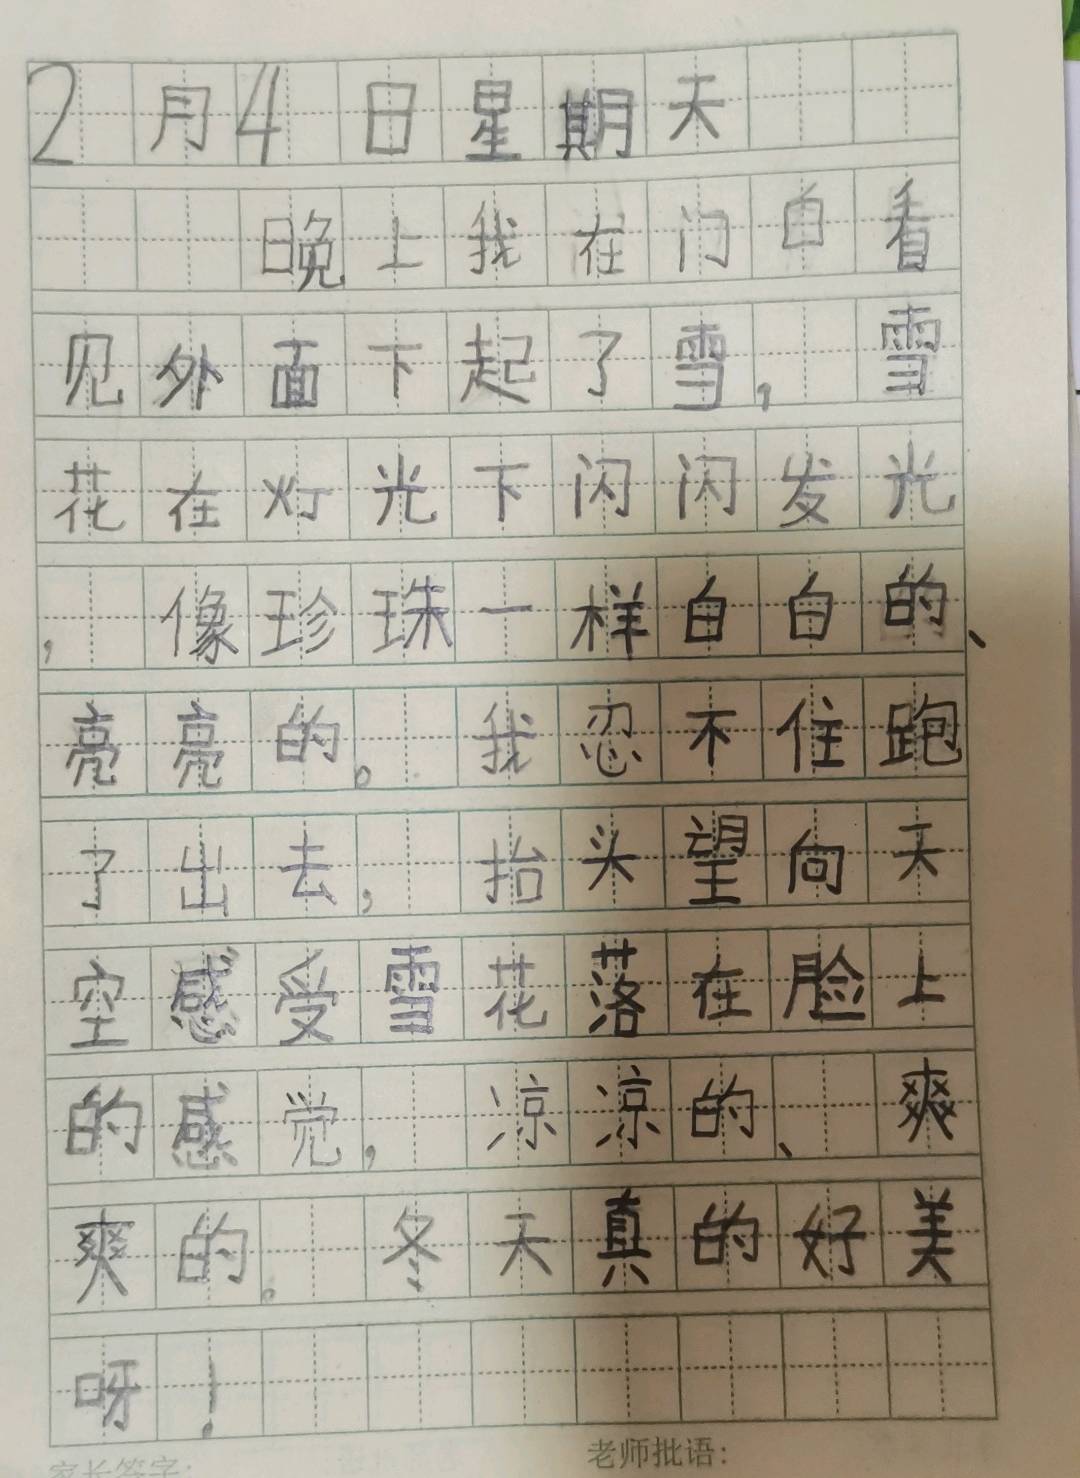 2月4日星期天
晚上我在门自看
见外面下起了雪，雪
花在灯光下闪闪发光
，像珍珠一样白白的、
亮亮的。我忍不住跑
了出去，抬头望向天
空感受雪花落在脸上
的感觉，凉凉的、爽
爽的。冬天真的好美
呀！
家长签字：
老师批语：